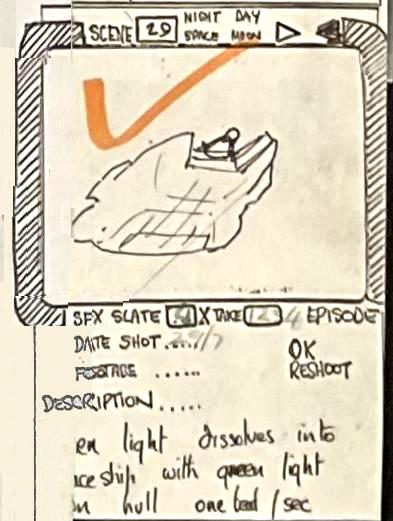 SCENE 29 NIGHT DAY
SPACE MOON
SFX SLATE X TAKE EPISODE
DATE SHOT..... 29/7
OK
FOOTAGE ...... RESHOOT
DESCRIPTION .....
en light dissolves into
ace ship with green light
on hull one /sec